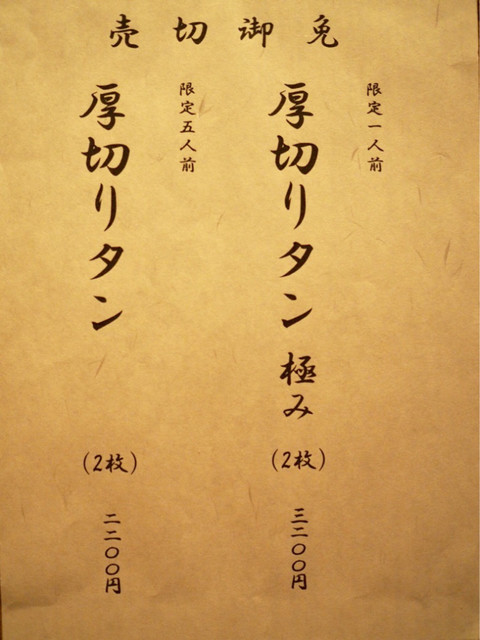 売切御免
限定一人前
厚切りタン 極み
(2枚)
三二〇〇円
限定五人前
厚切りタン
(2枚)
二二〇〇円